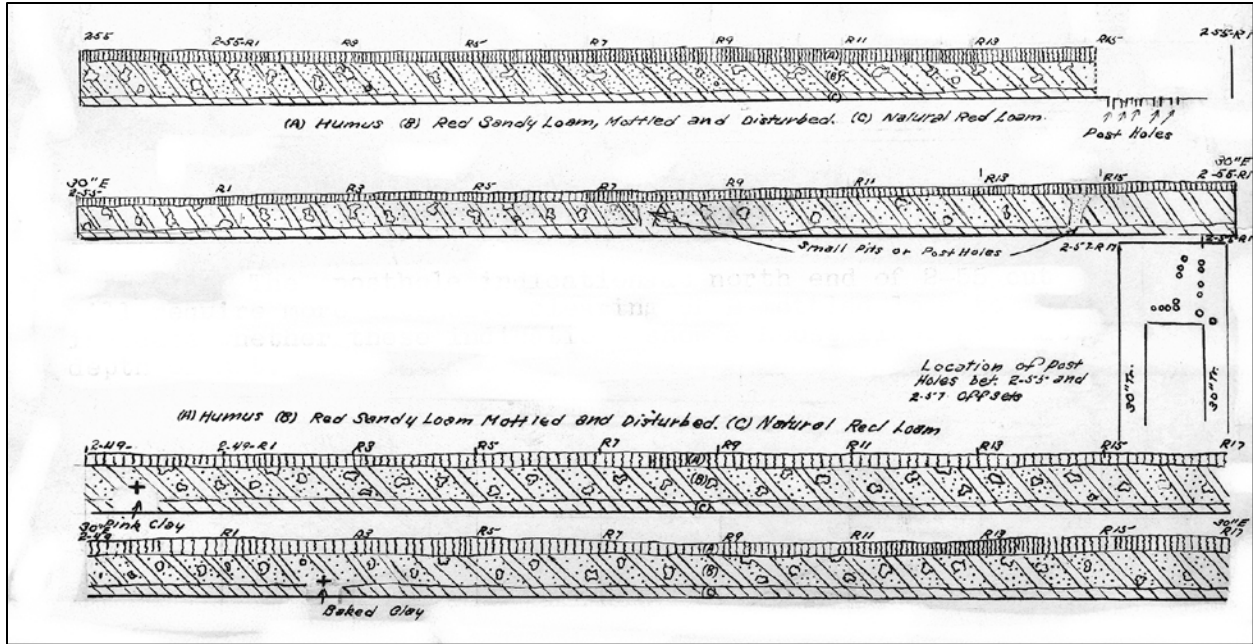 2-55 2-55-R1 R3 R5 R7 R9 R11 R13 R15 2-55-R17
(A)
(B)
(C)
(A) Humus (B) Red Sandy Loam, Mottled and Disturbed. (C) Natural Red Loam.
Post Holes
30"E 2-55 R1 R3 R5 R7 R9 R11 R13 R15 30"E 2-55-R17
Small Pits or Post Holes
2-57-R17 2-55-R17
north end of
Location of Post
Holes bet. 2-55 and
2-57 Offsets
30"Tr. 30"Tr.
(A) Humus (B) Red Sandy Loam Mottled and Disturbed. (C) Natural Red Loam
2-49 2-49-R1 R3 R5 R7 R9 R11 R13 R15 R17
(A)
(B)
(C)
Pink Clay
30"E 2-49 R1 R3 R5 R7 R9 R11 R13 R15 30"E R17
A
B
C
Baked Clay